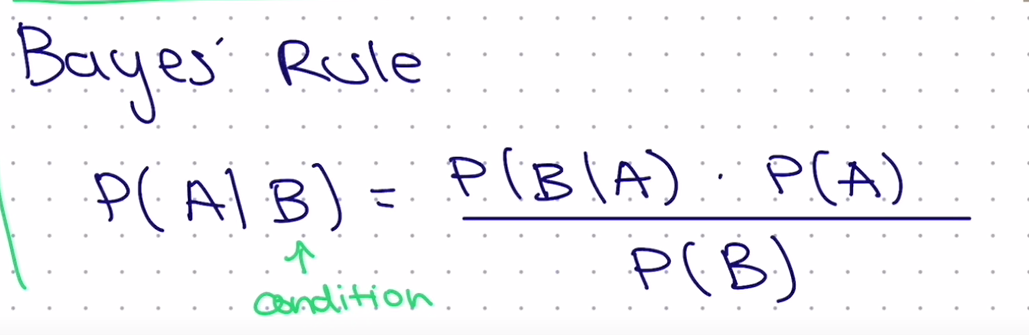 Bayes' Rule
P(A|B) = P(B|A) · P(A)
P(B)
↑
condition